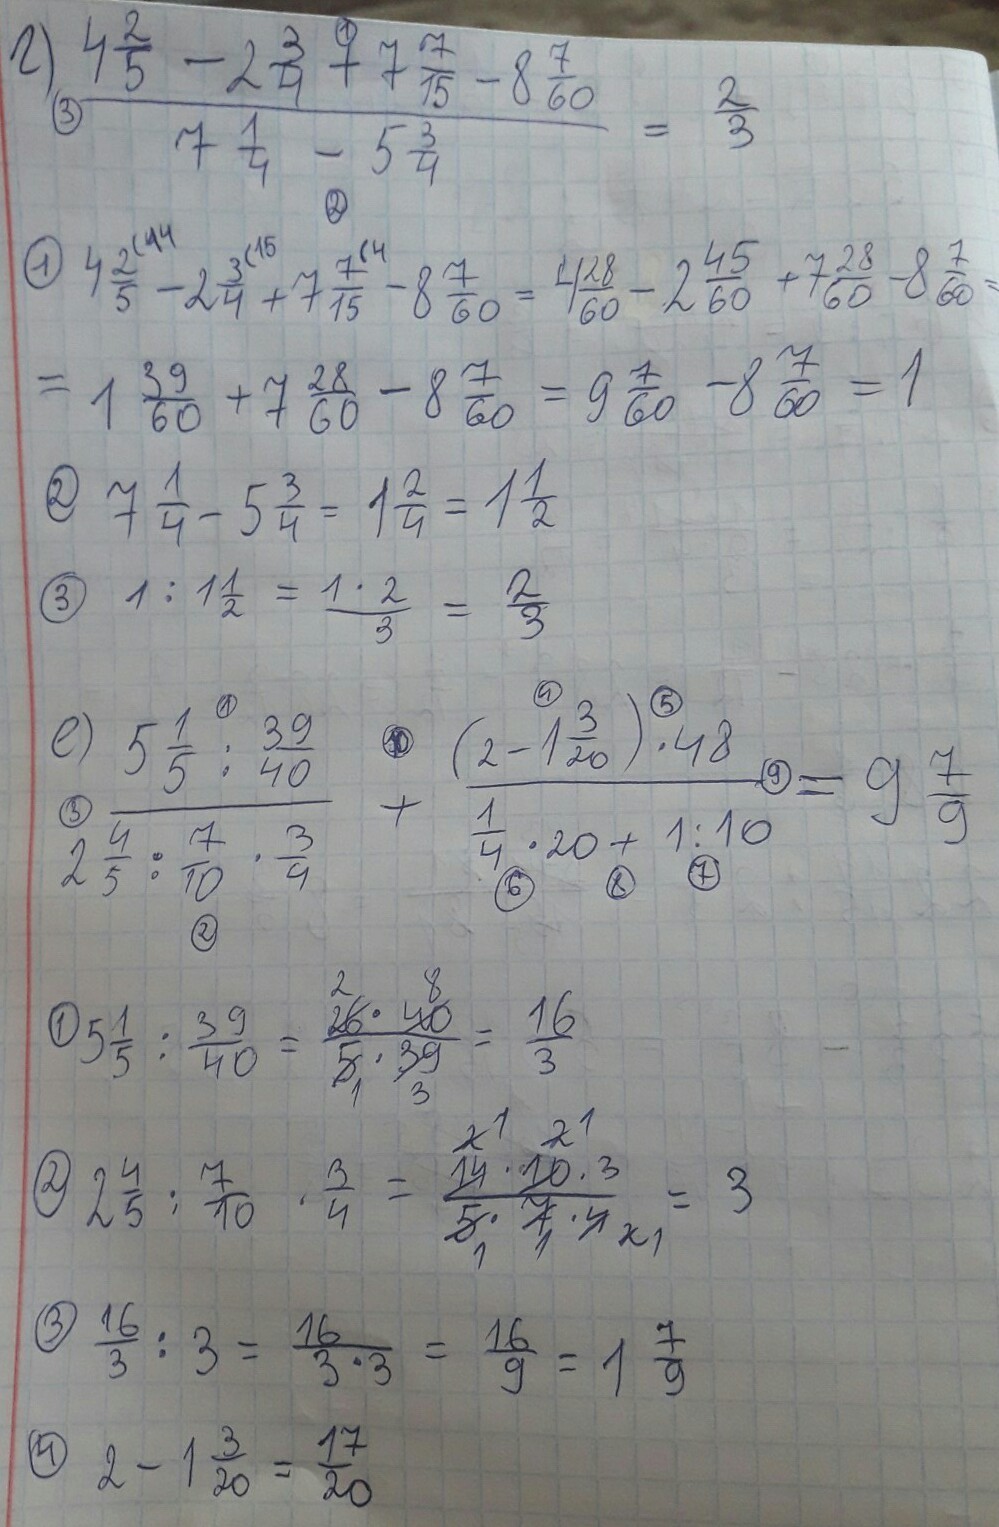 г) (4 2/5 − 2 3/4 + 7 7/15 − 8 7/60) / (7 1/4 − 5 3/4) = 2/3
① 4 2/5 − 2 3/4 + 7 7/15 − 8 7/60 = 4 28/60 − 2 45/60 + 7 28/60 − 8 7/60 =
= 1 39/60 + 7 28/60 − 8 7/60 = 9 7/60 − 8 7/60 = 1
② 7 1/4 − 5 3/4 = 1 2/4 = 1 1/2
③ 1 : 1 1/2 = (1 · 2)/3 = 2/3
е) (5 1/5 : 39/40) / (2 4/5 : 7/10 · 3/4) + ((2 − 1 3/20) · 48) / (1/4 · 20 + 1 : 10) = 9 7/9
① 5 1/5 : 39/40 = (26 · 40)/(5 · 39) = 16/3
② 2 4/5 : 7/10 · 3/4 = (14 · 10 · 3)/(5 · 7 · 4) = 3
③ 16/3 : 3 = 16/(3 · 3) = 16/9 = 1 7/9
④ 2 − 1 3/20 = 17/20